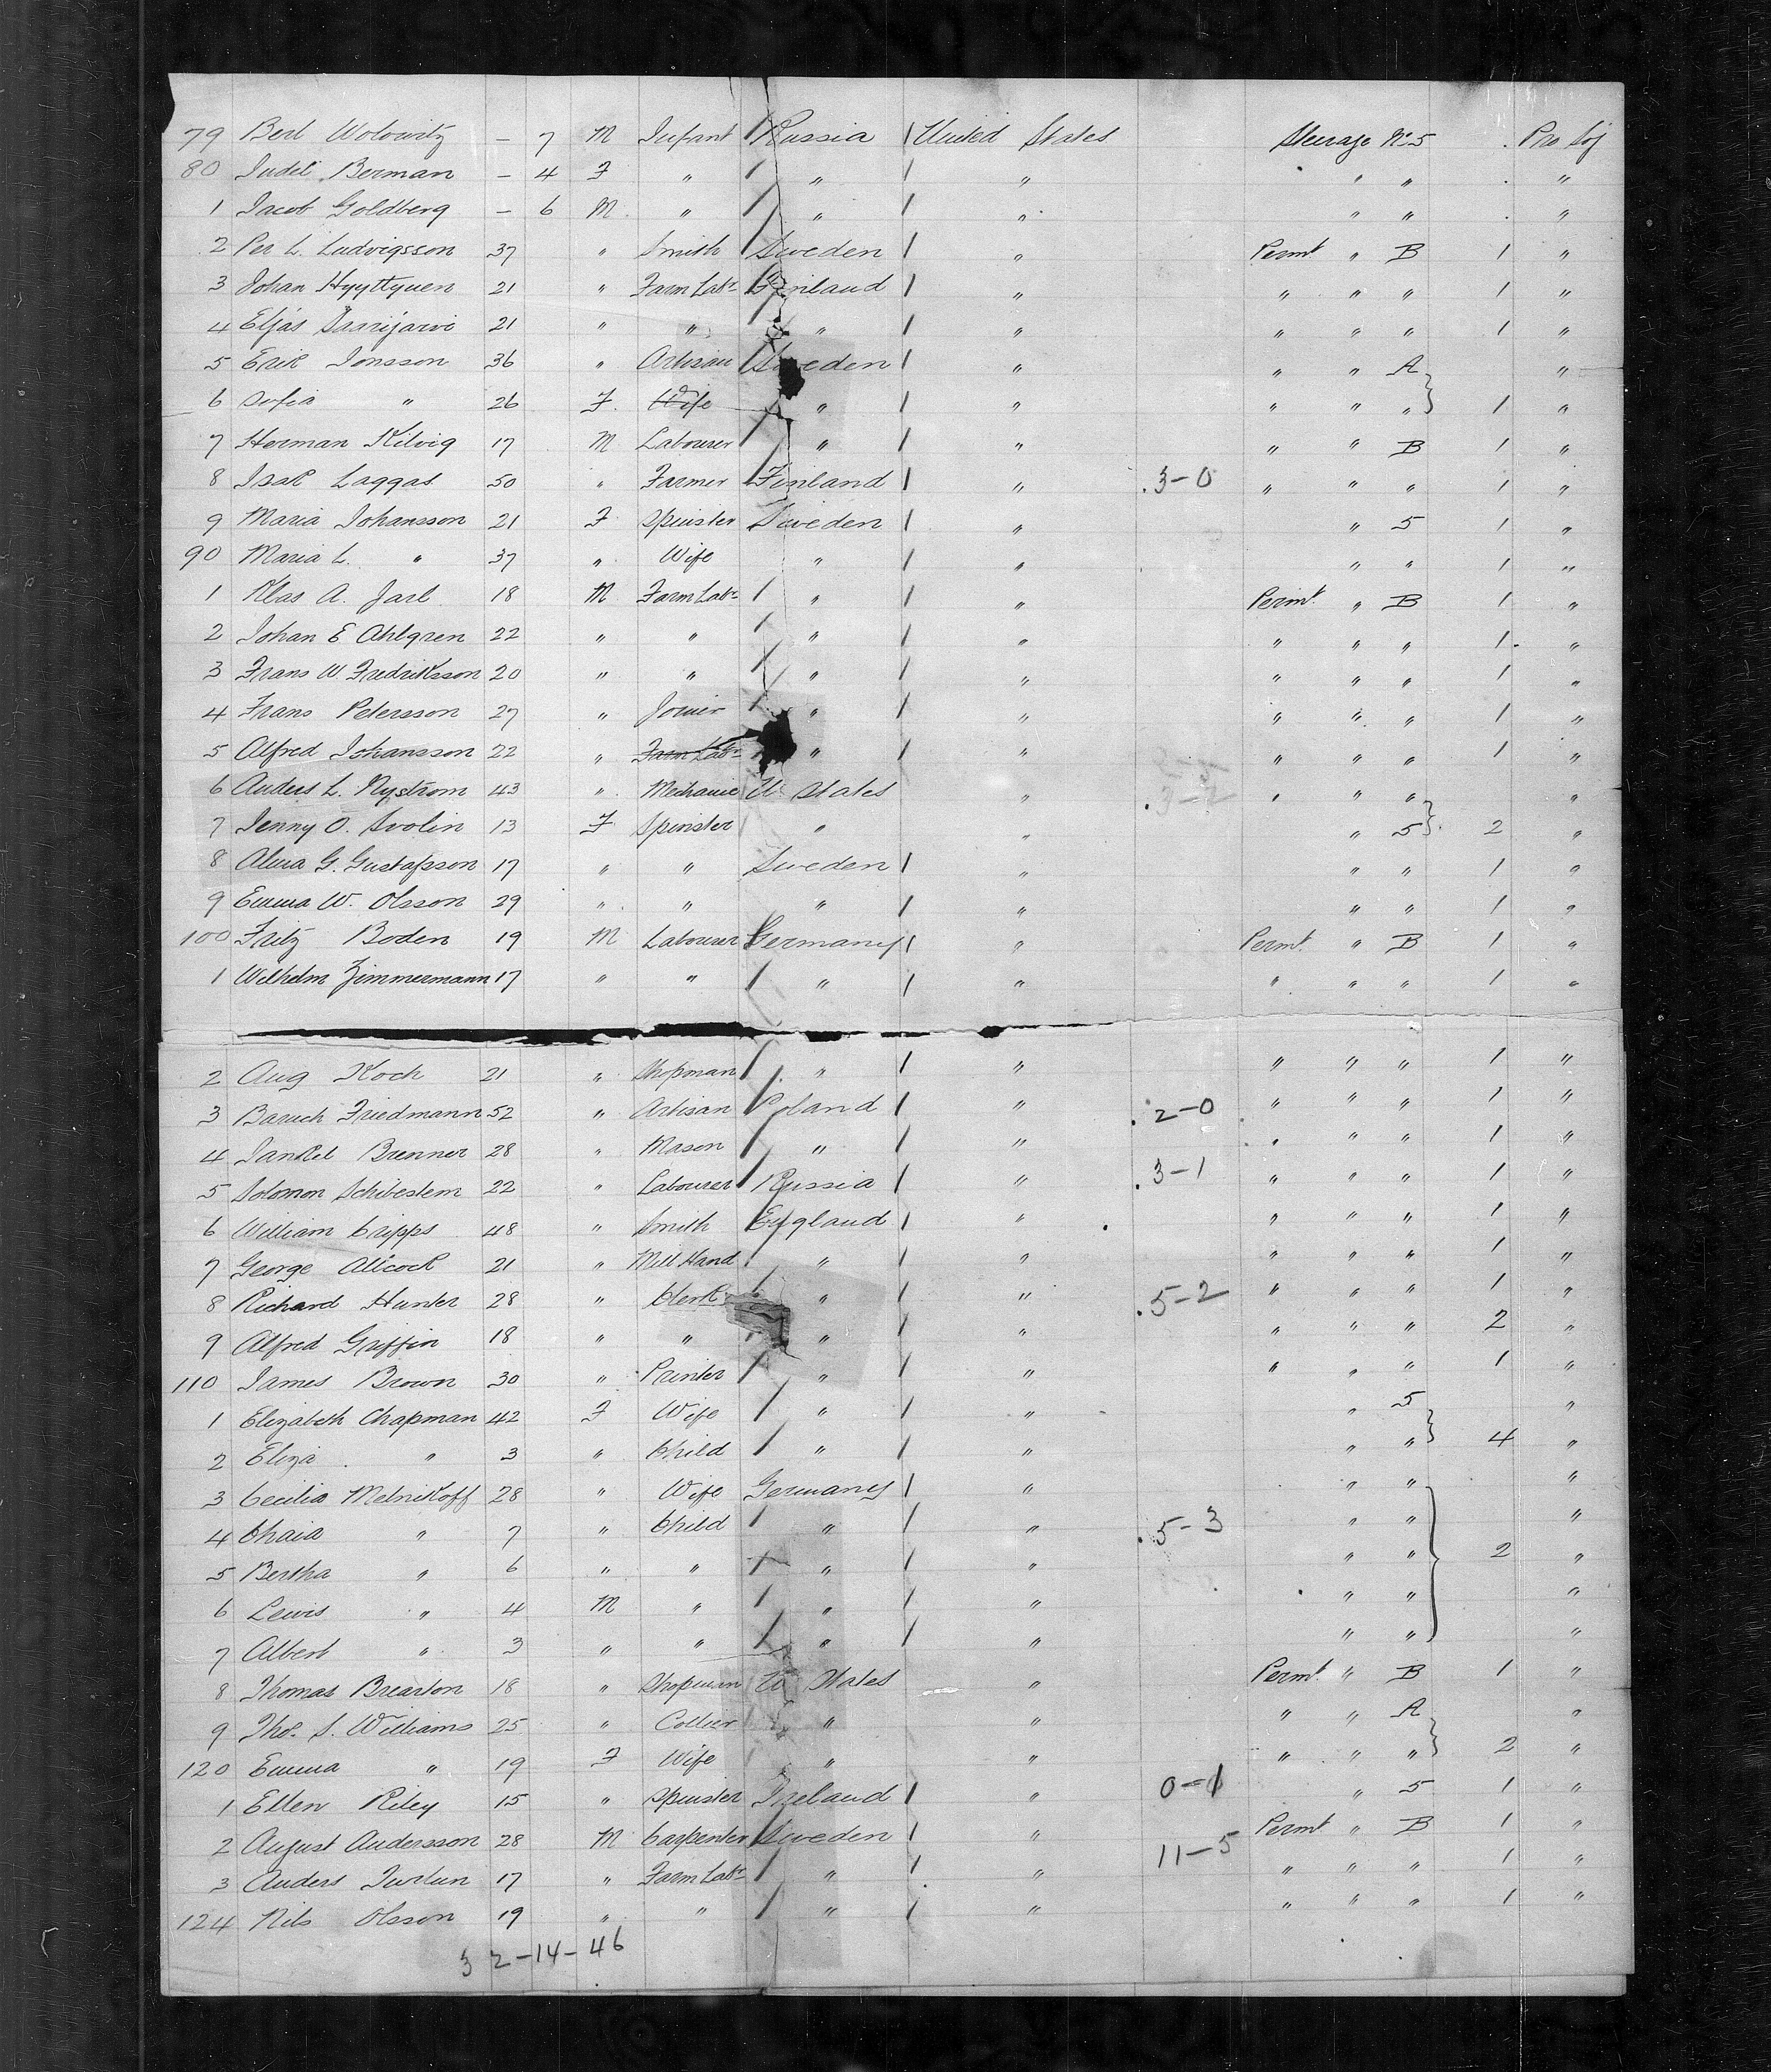 79 Berl Wolowitz – 7 M Infant Russia / United States Steerage No 5 . Pro Soj
80 Judel Berman – 4 F " / " / " " " . "
1 Jacob Goldberg – 6 M " / " / " " " . "
2 Per L. Ludvigsson 37 " Smith / Sweden / " Permt " B 1 "
3 Johan Hyyttynen 21 " Farm Labr / Finland / " " " " 1 "
4 Eljas Saarijarvi 21 " " " / " " " " 1 "
5 Erik Jonsson 36 " Artisan / Sweden / " " " A "
6 Sofia " 26 F. Wife " / " " " " } 1 "
7 Herman Kilvig 17 M Labourer / " / " " " B 1 "
8 Isak Laggas 50 " Farmer Finland / " .3–0 " " " 1 "
9 Maria Johansson 21 F Spinster Sweden / " " 5 1 "
90 Maria L. " 37 " Wife " / " " " 1 "
1 Klas A. Jarl 18 M Farm Labr / " / " Permt. " B 1 "
2 Johan E Ahlgren 22 " " / " / " " " " 1 "
3 Frans W. Fredriksson 20 " " / " / " " " " 1 "
4 Frans Petersson 27 " Joiner / " / " " " " 1 "
5 Alfred Johansson 22 " Farm Labr " / " " " " 1 "
6 Anders L. Nystrom 43 " Mechanic U. States " .3–2 " " " "
7 Jenny O. Svolin 13 F Spinster " " " 5 } 2 "
8 Alma G. Gustafsson 17 " " Sweden / " " " 1 "
9 Emma W. Olsson 29 " " " / " " " 1 "
100 Fritz Boden 19 M Labourer Germany / " Permt. " B 1 "
1 Wilhelm Zimmermann 17 " " / " / " " " " 1 "
2 Aug Koch 21 " Shopman / " / " " " " 1 "
3 Baruch Friedmann 52 " Artisan / Poland / " .2–0 " " " 1 "
4 Jankel Brenner 28 " Mason / " / " " " " 1 "
5 Solomon Schibestem 22 " Labourer / Russia / " .3–1 " " " 1 "
6 William Cripps 48 " Smith / England / " " " " 1 "
7 George Allcock 21 " Mill Hand / " / " " " " 1 "
8 Richard Hunter 28 " Clerk " / " .5–2 " " " 1 "
9 Alfred Griffin 18 " " / " / " " " " 2 "
110 James Brown 30 " Painter / " / " " " " 1 "
1 Elizabeth Chapman 42 F Wife / " / " " 5 "
2 Eliza " 3 " Child / " / " " " } 4 "
3 Cecilia Melnikoff 28 " Wife Germany / " " " "
4 Chaia " 7 " Child / " / " .5–3 " " "
5 Bertha " 6 " " / " / " " " } 2 "
6 Lewis " 4 M " / " / " " " "
7 Albert " 3 " " / " / " " " "
8 Thomas Brearton 18 " Shopman U States " Permt. " B 1 "
9 Thos. S. Williams 25 " Collier " " " " A "
120 Emma " 19 F Wife " " " " " } 2 "
1 Ellen Riley 15 " Spinster Ireland / " 0–1 " 5 1 "
2 August Andersson 28 M Carpenter Sweden / " 11–5 Permt " B 1 "
3 Anders 17 " Farm Labr / " / " " " " 1 "
124 Nils Olsson 19 " " / " / " " " " 1 "
32–14–46